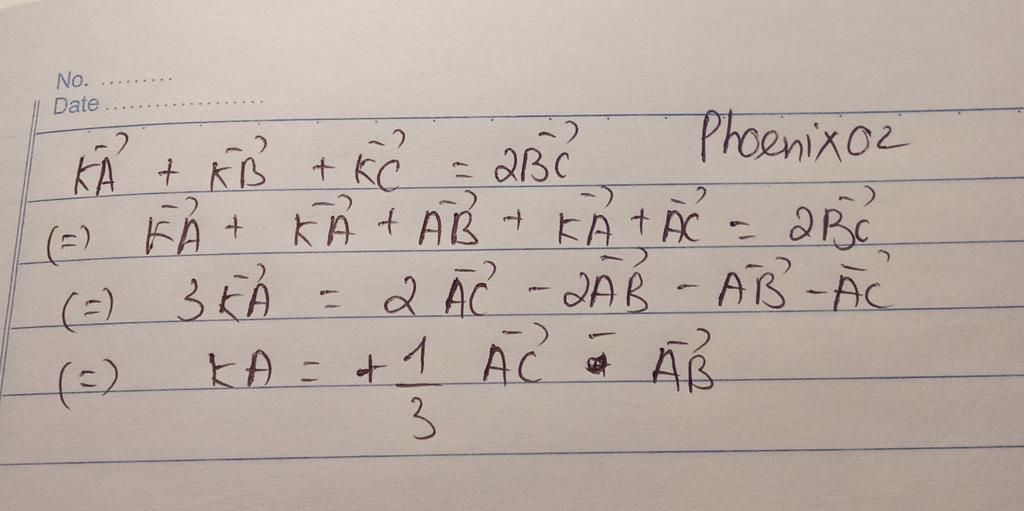 No. .........
Date ..................
Phoenix02
$\vec{KA} + \vec{KB} + \vec{KC} = 2\vec{BC}$
(=) $\vec{KA} + \vec{KA} + \vec{AB} + \vec{KA} + \vec{AC} = 2\vec{BC}$
(=) $3\vec{KA} = 2\vec{AC} - 2\vec{AB} - \vec{AB} - \vec{AC}$
(=) $KA = +\frac{1}{3} \vec{AC} - \vec{AB}$